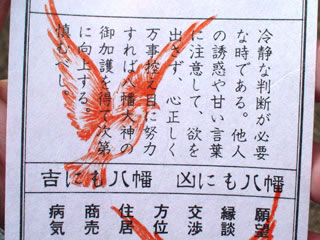 冷静な判断が必要
な時である。他人
の誘惑や甘い言葉
に注意して、欲を
出さず、心正しく
万事控え目に努力
すれば八幡大神の
御加護を得て次第
に向上する。
慎むべし。
吉にも八幡 凶にも八幡
願望
縁談
交渉
方位
住居
商売
病気